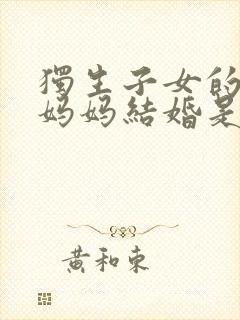 獨生子女的
妈妈結婚是
黃和東